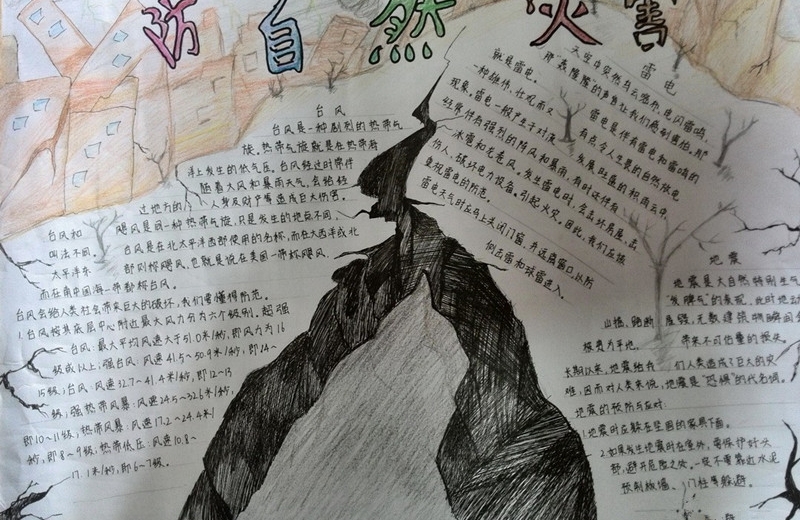 防自然灾害
台风
台风是一种剧烈的热带气
旋,热带气旋就是在热带海
洋上发生的低气压。台风经过时常伴
随着大风和暴雨天气。会给经
过地方的人身及财产等造成巨大伤害。
台风和飓风是同一种热带气旋,只是发生的地点不同,
叫法不同。台风是在北太平洋西部使用的名称,而在大西洋或北
太平洋东部则称飓风。也就是说在美国一带称飓风,
而在南中国海一带都称台风。
台风会给人类社会带来巨大的破坏,我们要懂得防范。
1.台风按其底层中心附近最大风力分为六个级别。超强
台风:最大平均风速大于51.0米/秒,即风力为16
级或以上;强台风:风速41.5~50.9米/秒,即14~
15级;台风:风速32.7~41.4米/秒,即12~13
级;强热带风暴:风速24.5~32.6米/秒,
即10~11级;热带风暴:风速17.2~24.4米/
秒,即8~9级;热带低压:风速10.8~
17.1米/秒,即6~7级。
雷电
天空中突然乌云密布,电闪雷鸣,
那“轰隆隆”的声音让我们感到害怕,那
就是雷电。雷电是伴有雷电和雷鸣的
一种雄伟、壮观而又有点令人生畏的自然放电
现象。雷电一般产生于对流发展旺盛的积雨云中,
经常伴有强烈的阵风和暴雨,有时还伴有
冰雹和龙卷风。发生雷电时,会击坏房屋、击
伤人、破坏电力设备,引起火灾。因此,我们应该
重视雷电的防范。
雷电天气时应马上关闭门窗,并远离窗口,以防
侧击雷和球雷进入。
地震
地震是大自然特别生气
“发脾气”的表现,
山摇,
带来不可估量的损失。
长期以来,地震给
们人类造成了巨大的灾
难,因而对人类来说,地震是“恐怖”的代名词。
地震的预防与应对:
1.地震时应躲在坚固的家具下面。
2.如果发生地震时在室外,要保护好头
部,避开危险之处。一定不要靠近水泥
预制板墙、门柱等躲避。